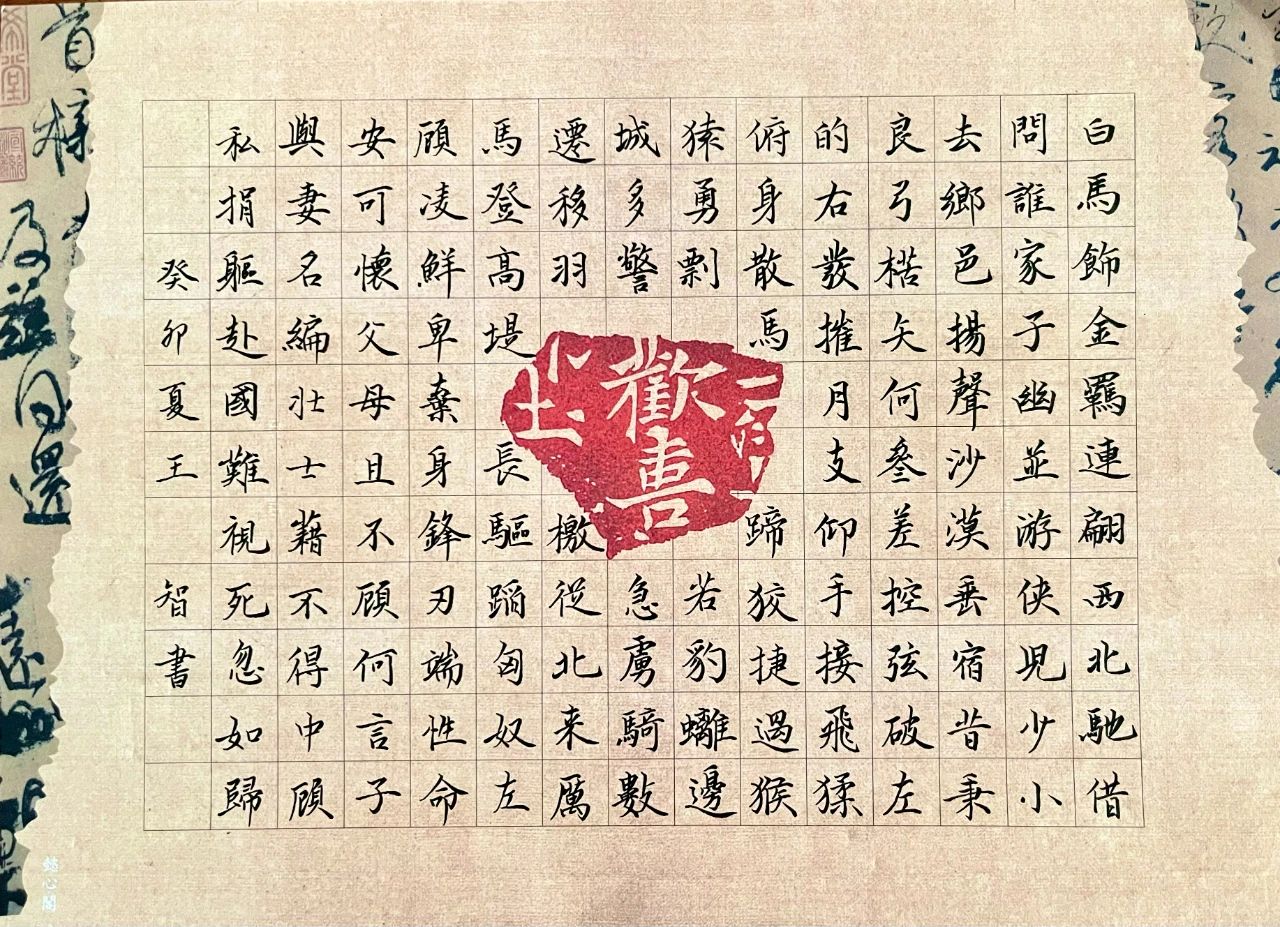 白馬飾金羈連翩西北馳借
問誰家子幽並游侠児少小
去鄉邑揚聲沙漠垂宿昔秉
良弓楛矢何參差控弦破左
的右發摧月支仰手接飛猱
俯身散馬蹄狡捷過猴
猿勇剽若豹螭邊
城多警急虜騎數
遷移羽檄從北来厲
馬登高堤長驅蹈匈奴左
顧凌鮮卑棄身鋒刃端性命
安可懷父母且不顧何言子
與妻名編壯士藉不得中顧
私捐軀赴國難視死忽如歸
癸卯夏王智書
歡喜